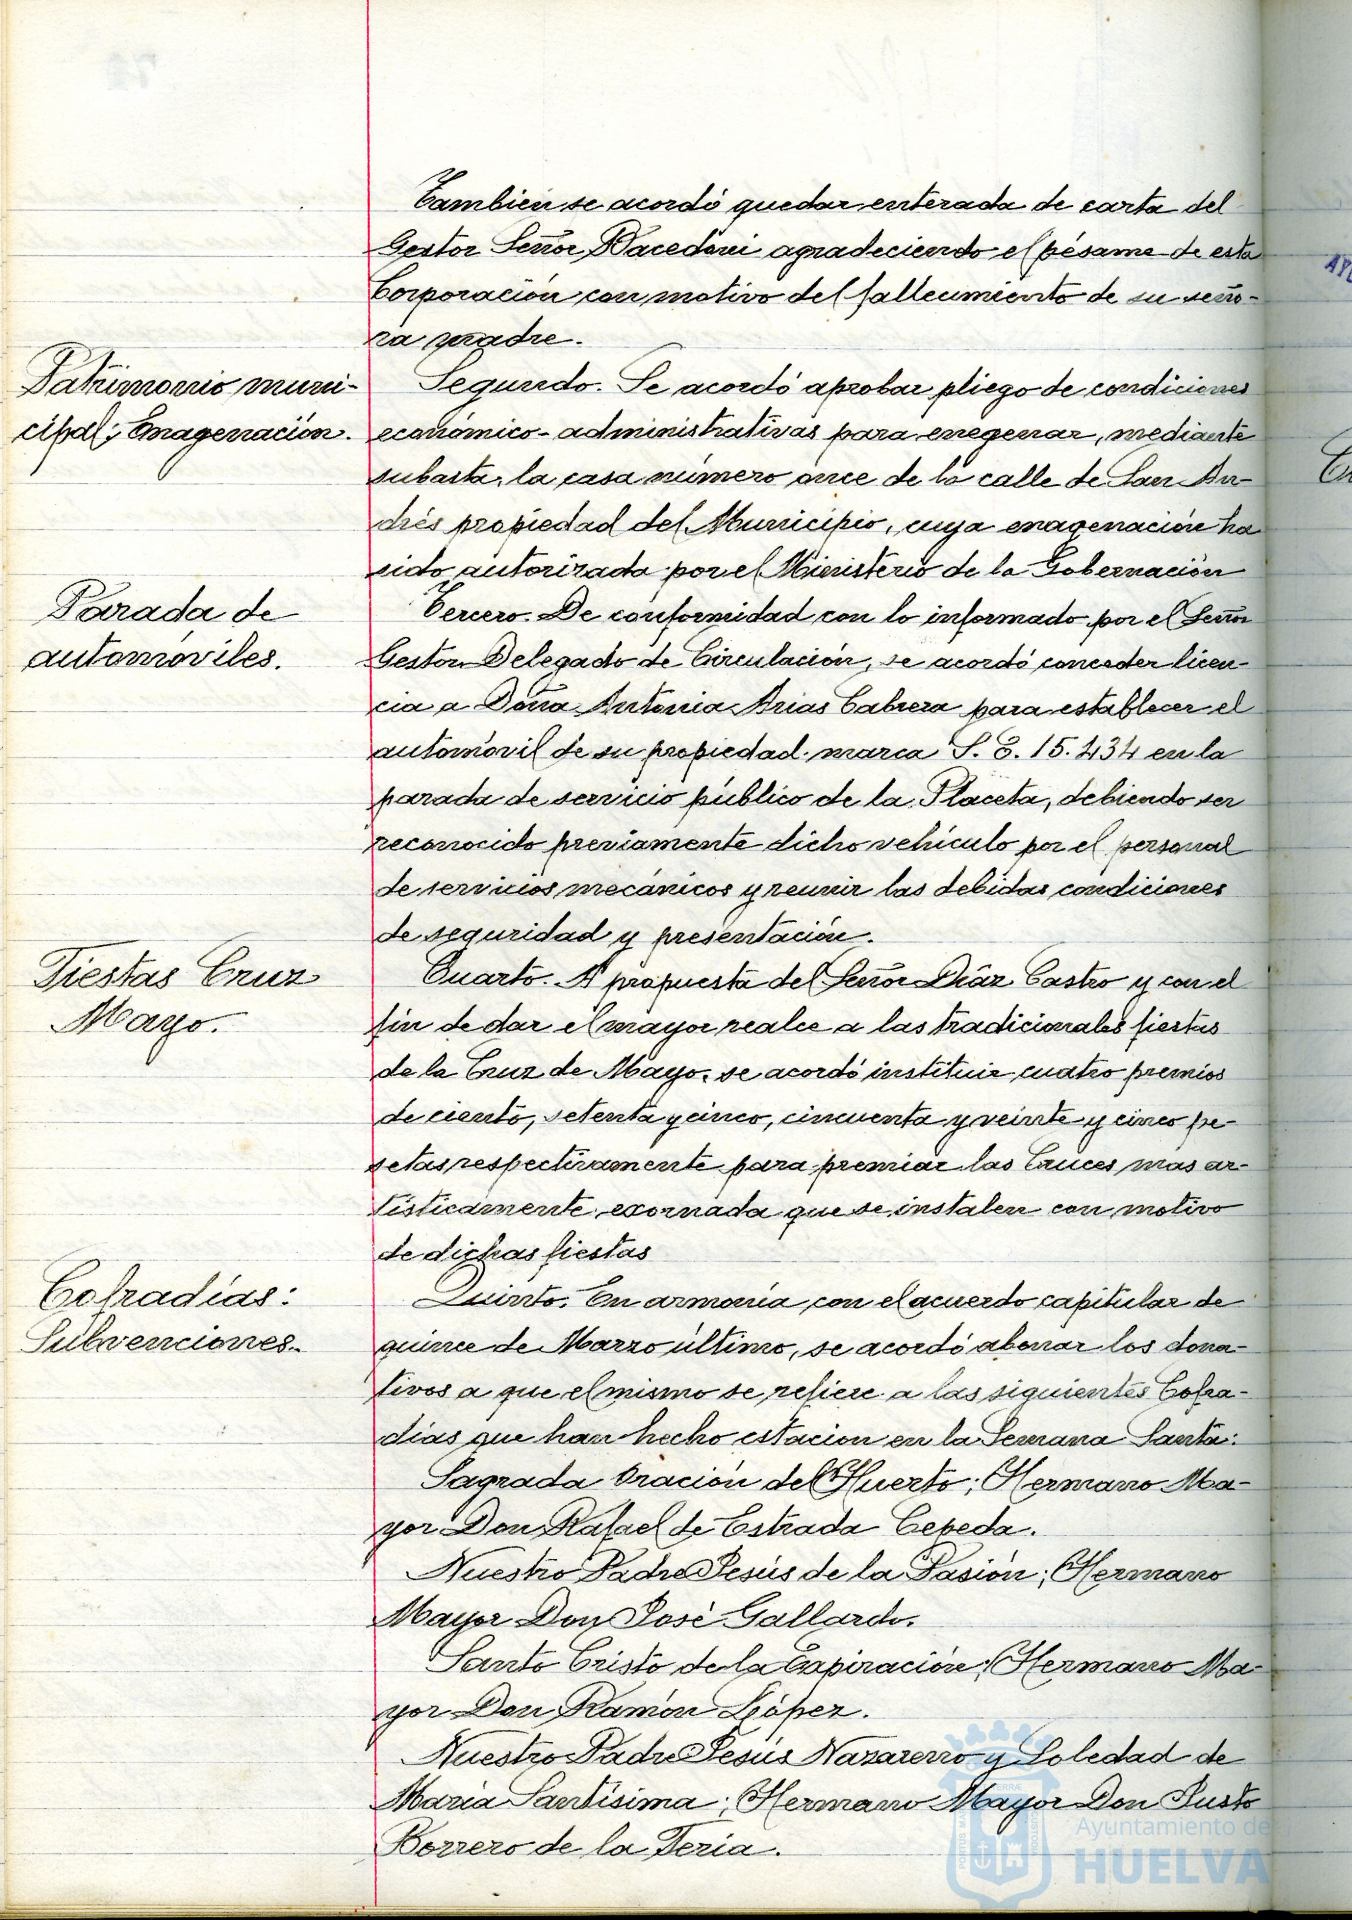 Tambien se acordó quedar enterada de carta del
Gestor Señor Macedoni agradeciendo el pésame de esta
Corporación con motivo del fallecimiento de su seño-
ra madre.
Patrimonio muni-
cipal; Enagenación.
Segundo. Se acordó aprobar pliego de condiciones
económico-administrativas para enegenar, mediante
subasta, la casa número once de la calle de San An-
drés propiedad del Municipio, cuya enagenación ha
sido autorizada por el Ministerio de la Gobernación
Parada de
automóviles.
Tercero. De conformidad con lo informado por el Señor
Gestor Delegado de Circulación, se acordó conceder licen-
cia a Doña Antonia Arias Cabrera para establecer el
automóvil de su propiedad marca S. E. 15.434 en la
parada de servicio público de la Placeta, debiendo ser
reconocido previamente dicho vehículo por el personal
de servicios mecánicos y reunir las debidas condiciones
de seguridad y presentación.
Fiestas Cruz
Mayo.
Cuarto. A propuesta del Señor Díaz Castro y con el
fin de dar el mayor realce a las tradicionales fiestas
de la Cruz de Mayo, se acordó instituir cuatro premios
de ciento, setenta y cinco, cincuenta y veinte y cinco pe-
setas respectivamente para premiar las Cruces mas ar-
tísticamente exornada que se instalen con motivo
de dichas fiestas
Cofradías:
Subvenciones.
Quinto. En armonía con el acuerdo capitular de
quince de Marzo último, se acordó abonar los dona-
tivos a que el mismo se refiere a las siguientes Cofra-
dias que han hecho estación en la Semana Santa:
Sagrada Oración del Huerto; Hermano Ma-
yor Don Rafael de Estrada Cepeda.
Nuestro Padre Jesús de la Pasión; Hermano
Mayor Don José Gallardo.
Santo Cristo de la Expiración; Hermano Ma-
yor Don Ramón López.
Nuestro Padre Jesús Nazareno y Soledad de
María Santísima; Hermano Mayor Don Justo
Borrero de la Feria.
Ayuntamiento de
HUELVA